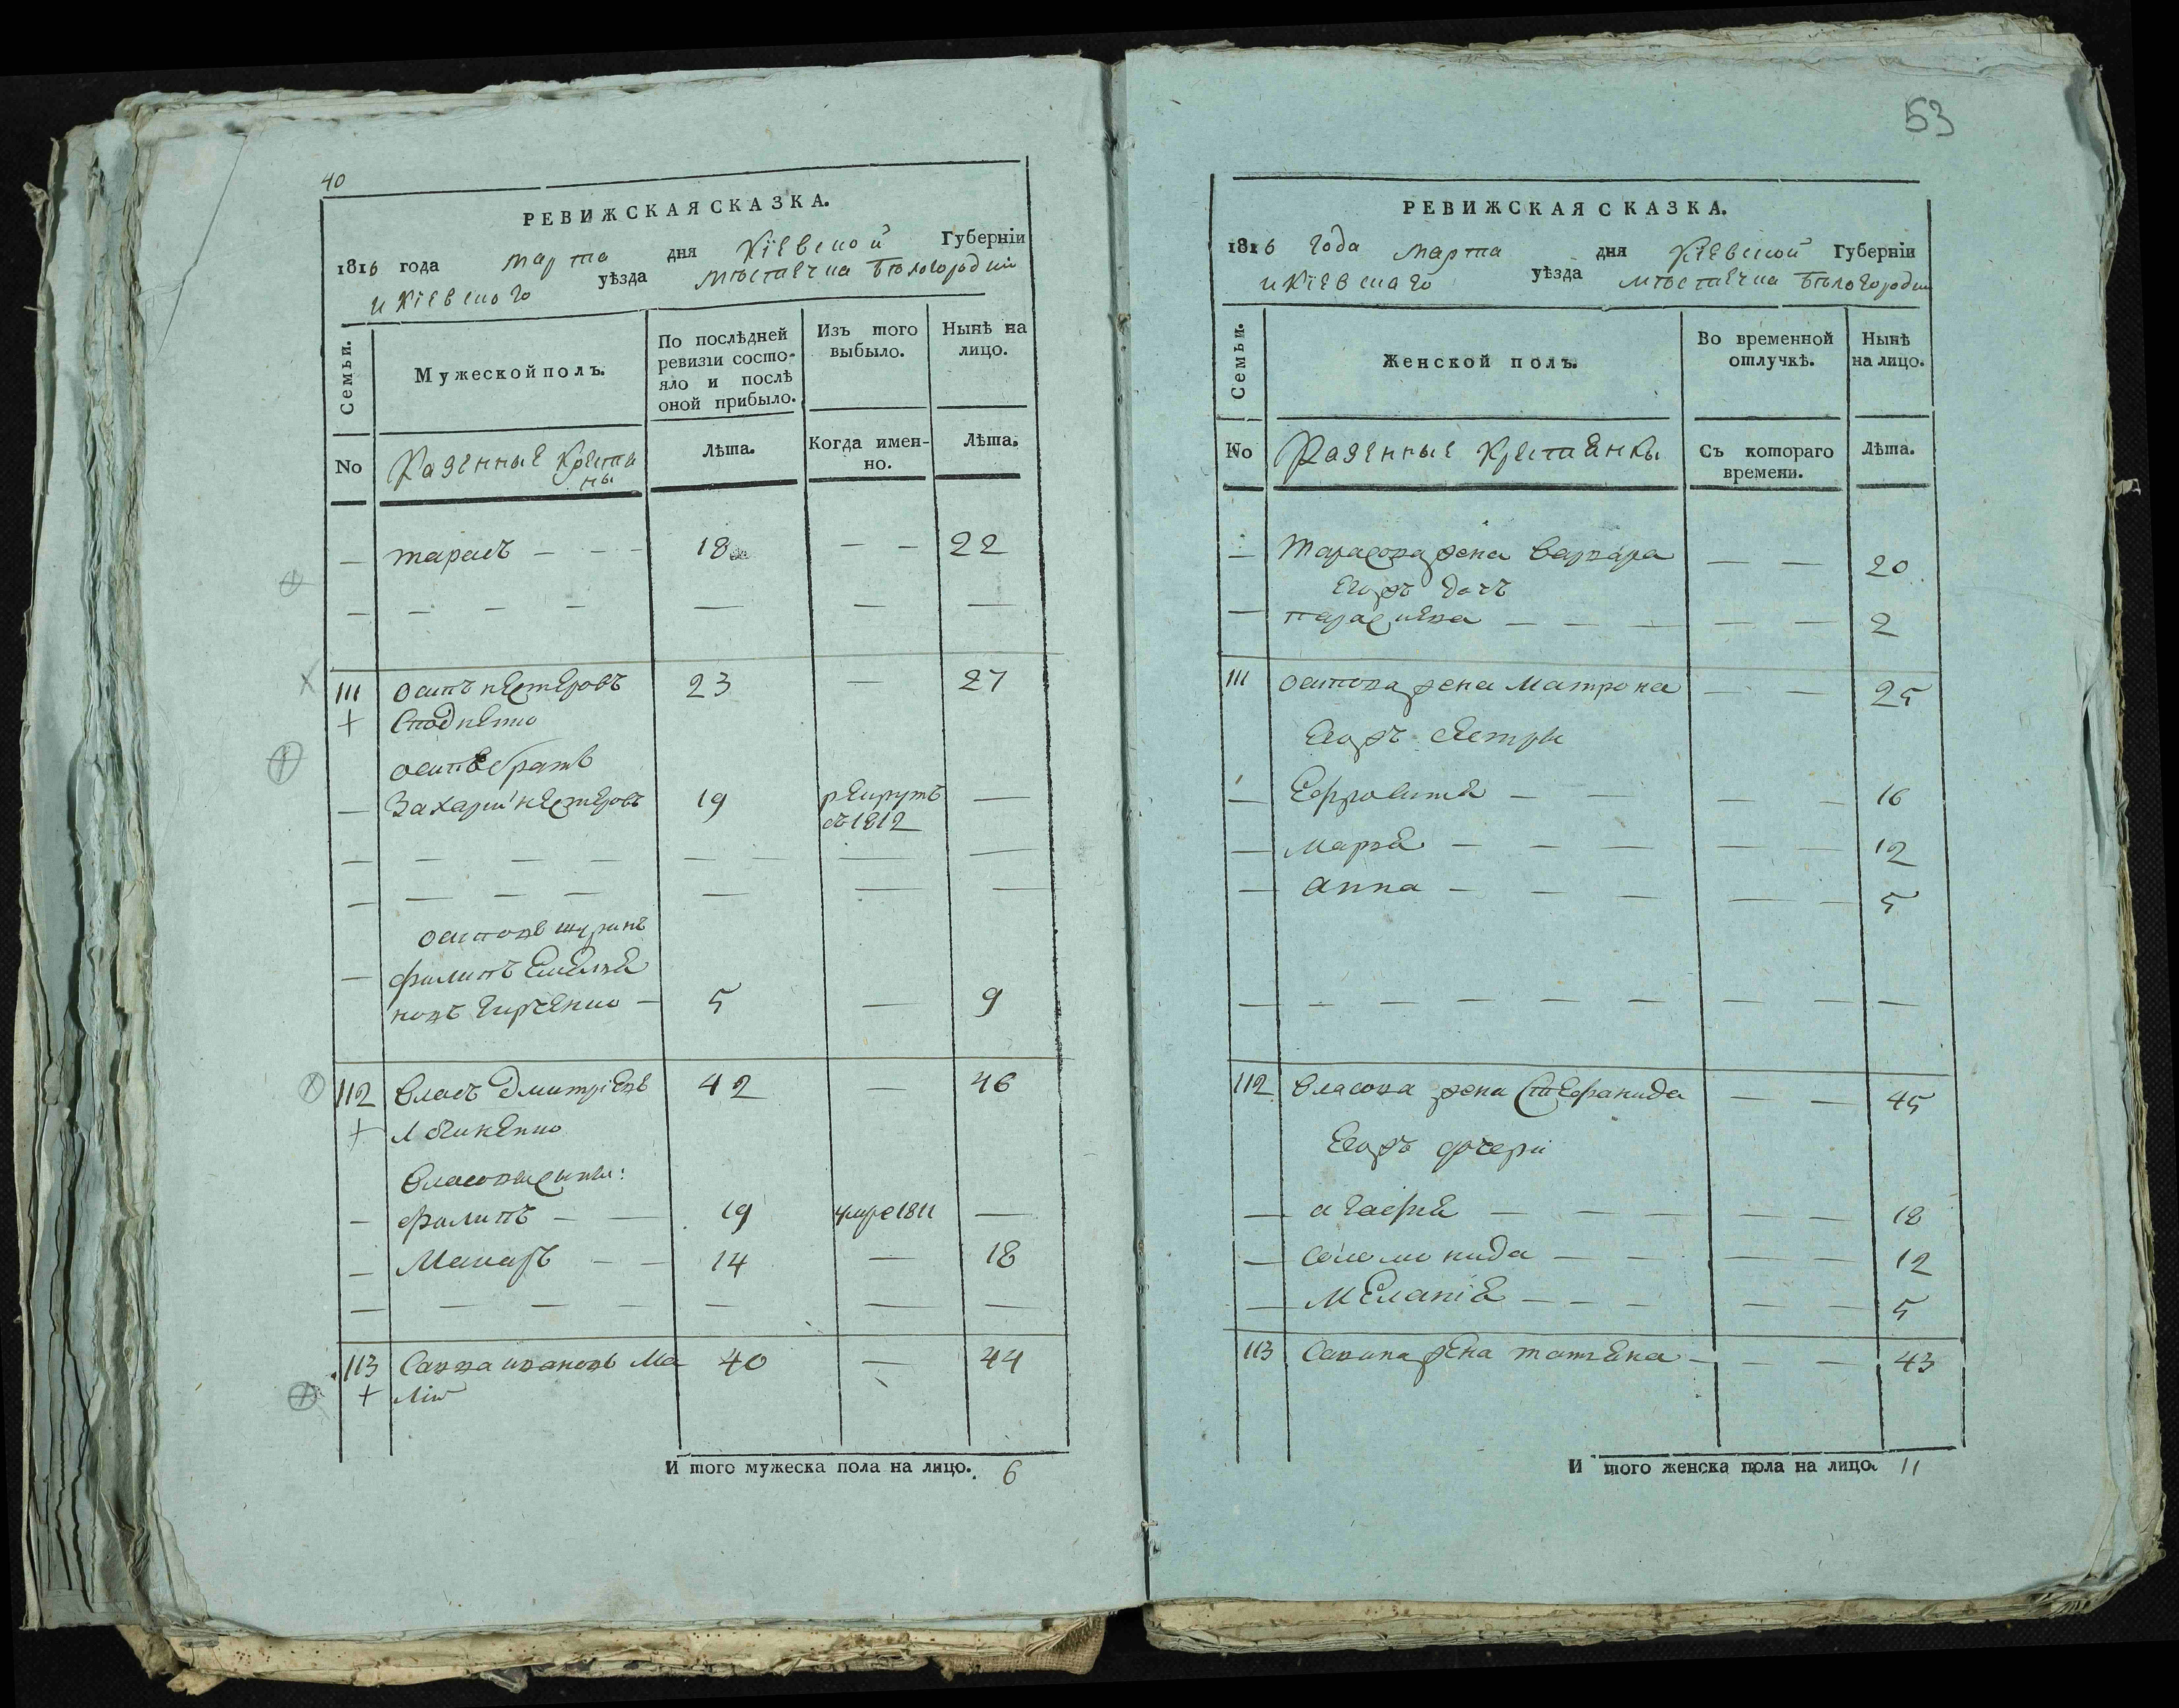 40
РЕВИЖСКАЯ СКАЗКА.
1816 года марта дня Кіевской Губерніи
и Кіевского уѣзда мѣстечка Бѣлогородки
Семьи.
Мужеской полъ.
По послѣдней
ревизіи состо-
яло и послѣ
оной прибыло.
Изъ того
выбыло.
Нынѣ на
лицо.
No
Казенные Крестя
ны
Лѣта.
Когда имен-
но.
Лѣта.
— тарасъ — — — 18 — — 22
— — — — — — —
111 осипъ нестеровъ 23 — 27
+
осиповъ братъ
— Захарій нестеровъ 19 рекрутъ —
съ 1812
— — — — — — — —
— — — — — — —
осиповъ шуринъ
— филипъ Емелья
новъ — 5 — 9
112 власъ дмитріевъ 42 — 46
+
власовы сыны:
— филипъ — — 19 умре 1811 —
— Макаръ — — 14 — 18
— — — — — — —
113 Савва ивановъ Ма 40 — 44
+
И того мужеска пола на лицо. 6
53
РЕВИЖСКАЯ СКАЗКА.
1816 года марта дня Кіевской Губерніи
и Кіевскаго уѣзда мѣстечка Бѣлогородки
Семьи.
Женской полъ.
Во временной
отлучкѣ.
Нынѣ
на лицо.
No
Казенные Крестянки
Съ котораго
времени.
Лѣта.
— Тарасова жена варвара — — 20
Егожъ дочь
— парасковя — — — — — 2
111 осипова жена Матрона — — 25
Егожъ сестры
— Ефросиня — — — — 16
— Маря — — — — — 12
— анна — — — — — 5
— — — — — — — — —
112 власова жена Стефанида — — 45
Егожъ дочери
— агафия — — — — — 18
— соломонида — — — — 12
— Меланія — — — — — 5
113 Савина жена татяна — — — 43
И того женска пола на лицо. 11